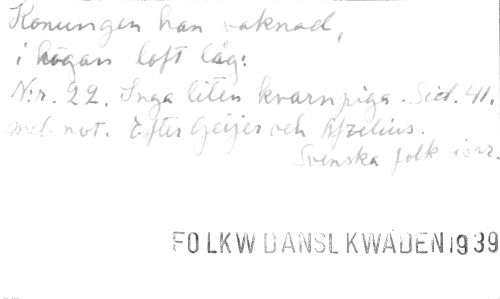 Konungen han vaknad,
i högan loft låg:
N:r. 22. Inga liten kvarnpiga. Sid. 41.
med not. Efter Geijer och Afzelius.
Svenska folkvisor.
FOLKW DANSLKWADEN 1939